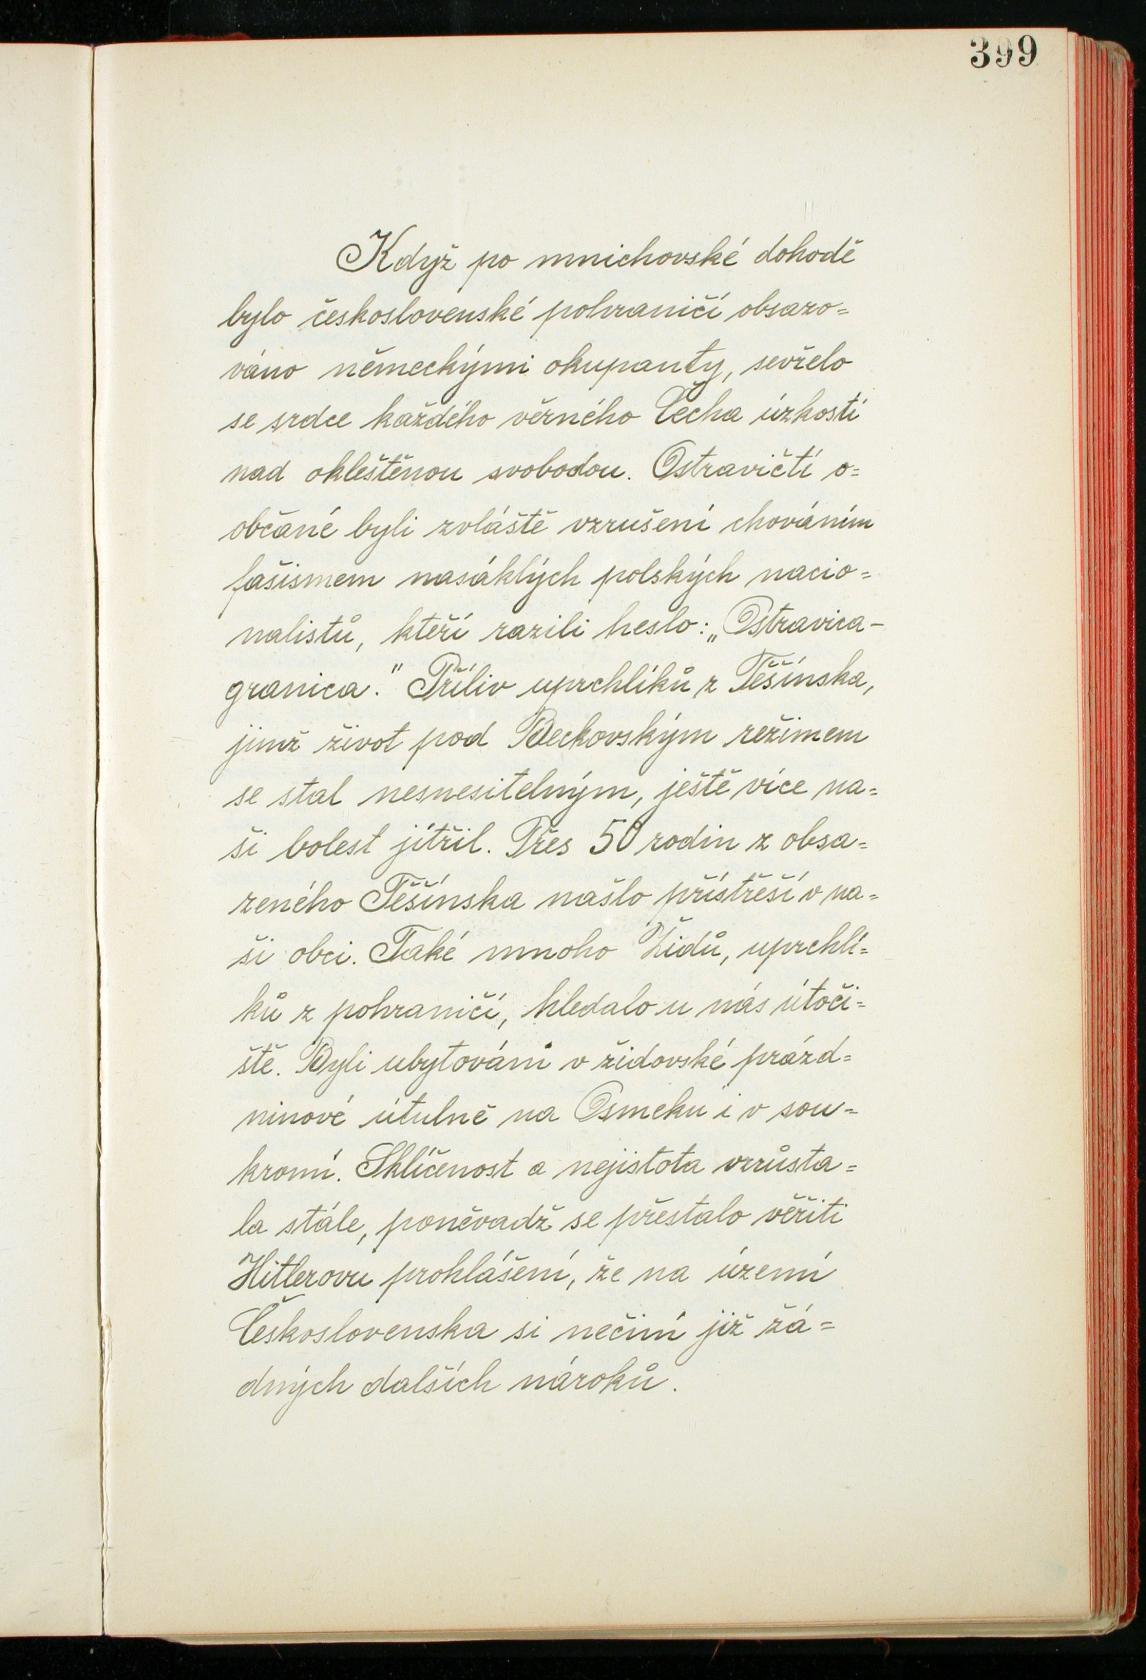 399
Když po mnichovské dohodě
bylo československé pohraničí obsazo=
váno německými okupanty, sevřelo
se srdce každého věrného Čecha úzkostí
nad okleštěnou svobodou. Ostravičtí o=
občané byli zvláště vzrušeni chováním
fašismem nasáklých polských nacio=
nalistů, kteří razili heslo: „Ostravica-
granica." Příliv uprchlíků z Těšínska,
jimž život pod Beckovským režimem
se stal nesnesitelným, ještě více na=
ši bolest jitřil. Přes 50 rodin z obsa=
zeného Těšínska našlo přístřeší v na=
ši obci. Také mnoho Židů, uprchlí=
ků z pohraničí, hledalo u nás útoči=
ště. Byli ubytováni v židovské prázd=
ninové útulně na Osmeku i v sou=
kromí. Sklíčenost a nejistota vzrůsta=
la stále, poněvadž se přestalo věřiti
Hitlerovu prohlášení, že na území
Československa si nečiní již žá=
dných dalších nároků.